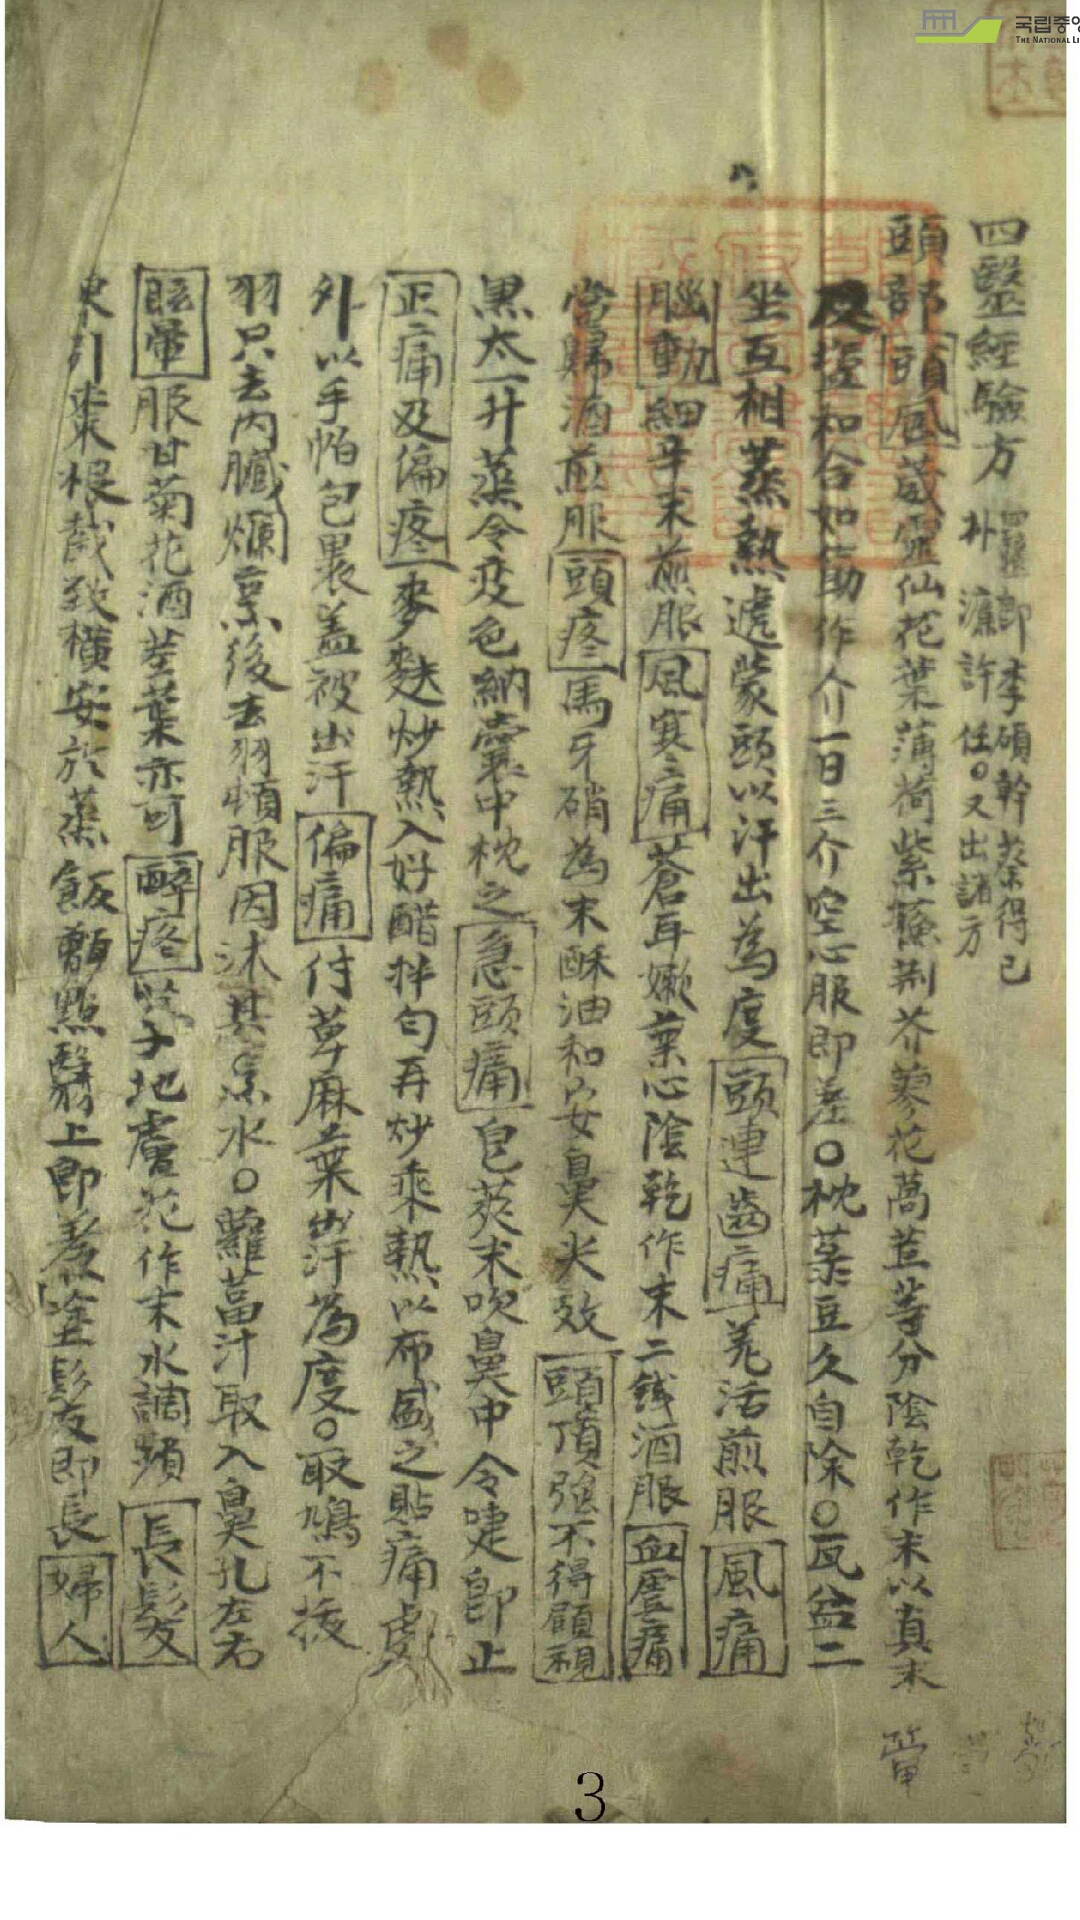 四醫經驗方 四醫卽李碩幹蔡得己
朴濂許任○又出諸方
頭部 頭風 葳霊仙花葉薄荷紫蘓荊芥蓼花萵苣等分陰乾作末以真末
及塩和合如作介一日三介空心服即差○枕菉豆久自除○瓦盆二
坐互相蒸熱遞蒙頭以汗出為度 頭連齒痛 羌活煎服 風痛
腦動 細辛末煎服 風寒痛 蒼耳嫩葉心陰乾作末二錢酒服 血虛痛
當歸酒煎服 頭疼 馬牙硝為末酥油和安鼻尖效 頭項強不得顧視
黑太一升蒸令变色納囊中枕之 急頭痛 皀莢末吹鼻中令嚏卽止
正痛及偏疼 麥麩炒熱入好醋拌匀再炒乘熱以布盛之貼痛處
外以手帕包裹盖被出汗 偏痛 付草麻葉出汗為度○取鳩不拔
羽只去内臟爛烹後去羽頓服因沐其烹水○蘿葍汁取入鼻孔左右
眩暈 服甘菊花酒莖葉亦可 醉疼 子地膚花作末水調頻 長髮
東引棗根截致橫安於蒸飯甑點翳上即煮塗髮即長 婦人
3
국립중앙
THE NATIONAL LI